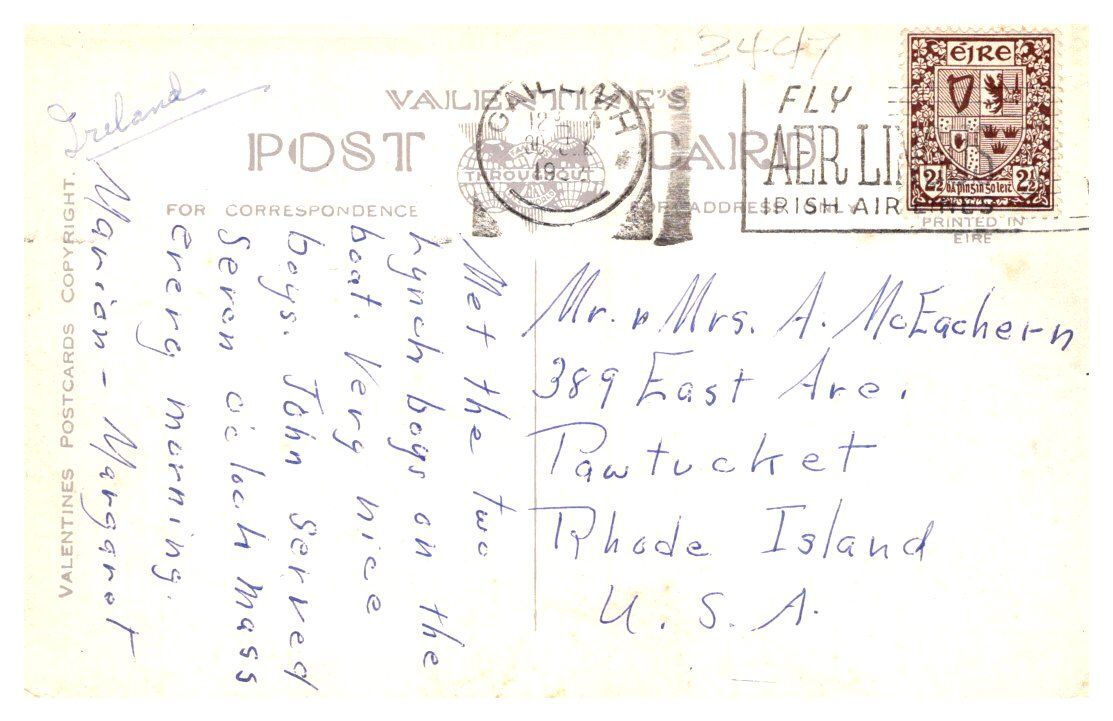 3447
Ireland
VALENTINE'S
POST CARD
THROUGHOUT
FOR CORRESPONDENCE
FOR ADDRESS ONLY
PRINTED IN
EIRE
VALENTINES POSTCARDS COPYRIGHT.
GAILLIMH
FLY
AER LIN
IRISH AIR LINES
éire
2½ pingin 2½
Met the two
Lynch boys on the
boat. Very nice
boys. John served
Seven o'clock Mass
every morning.
Marion - Margaret
Mr. & Mrs. A. McEachern
389 East Ave.
Pawtucket
Rhode Island
U. S. A.